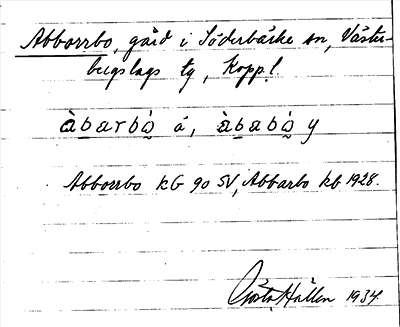 Abborrbo, gård i Söderbärke sn, Väster-
bergslags tg, Koppl.
àbarbó̠ á, àbabó̠ y
Abborrbo KG 90 SV, Abbarbo kb 1928.
Gösta Hallén 1934.